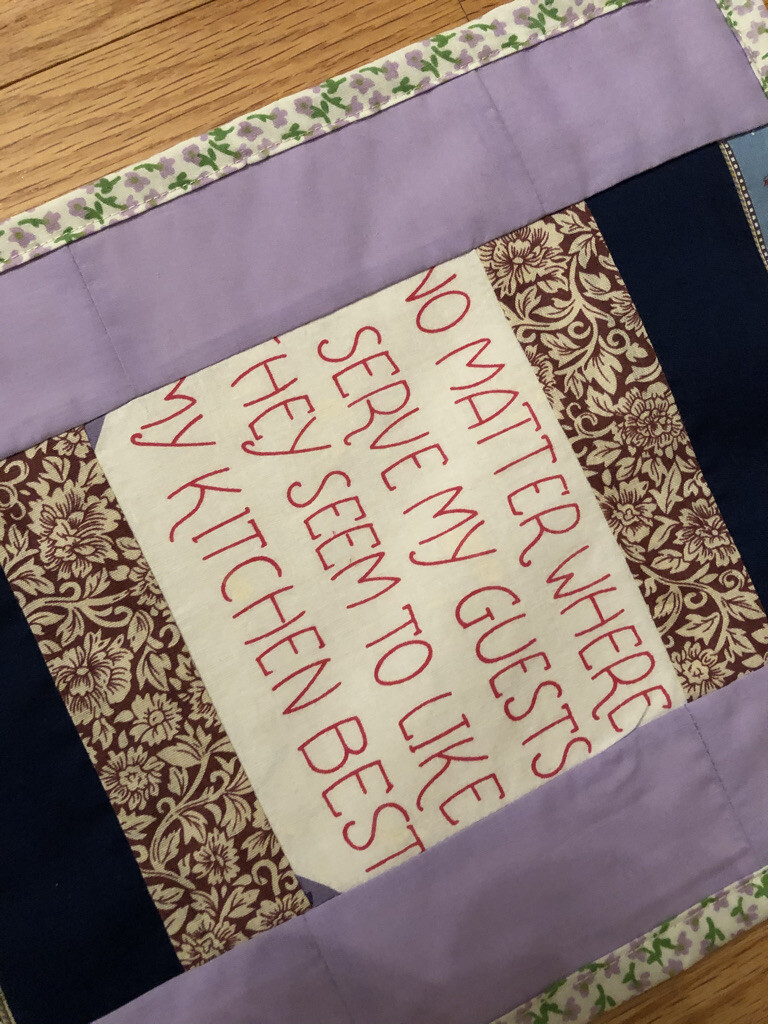 NO MATTER WHERE
SERVE MY GUESTS
THEY SEEM TO LIKE
MY KITCHEN BEST